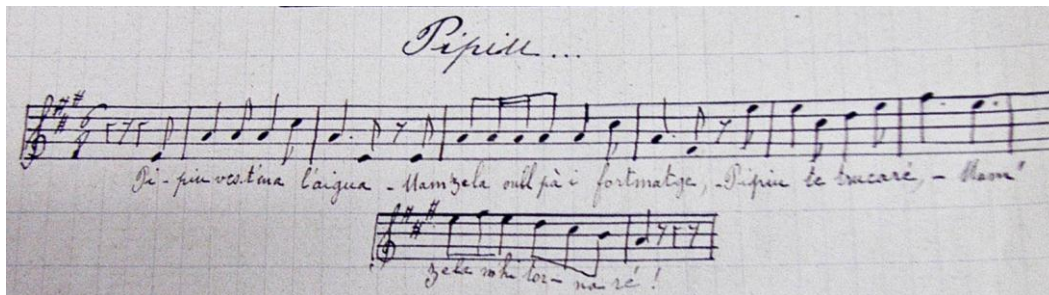 Pipiu....
Pi-piu ves-t'ena l'aigua - Mamzela vull pà i formatge, - Pipiu te trucaré, - Mam"
zela m'hi tor-na-ré!